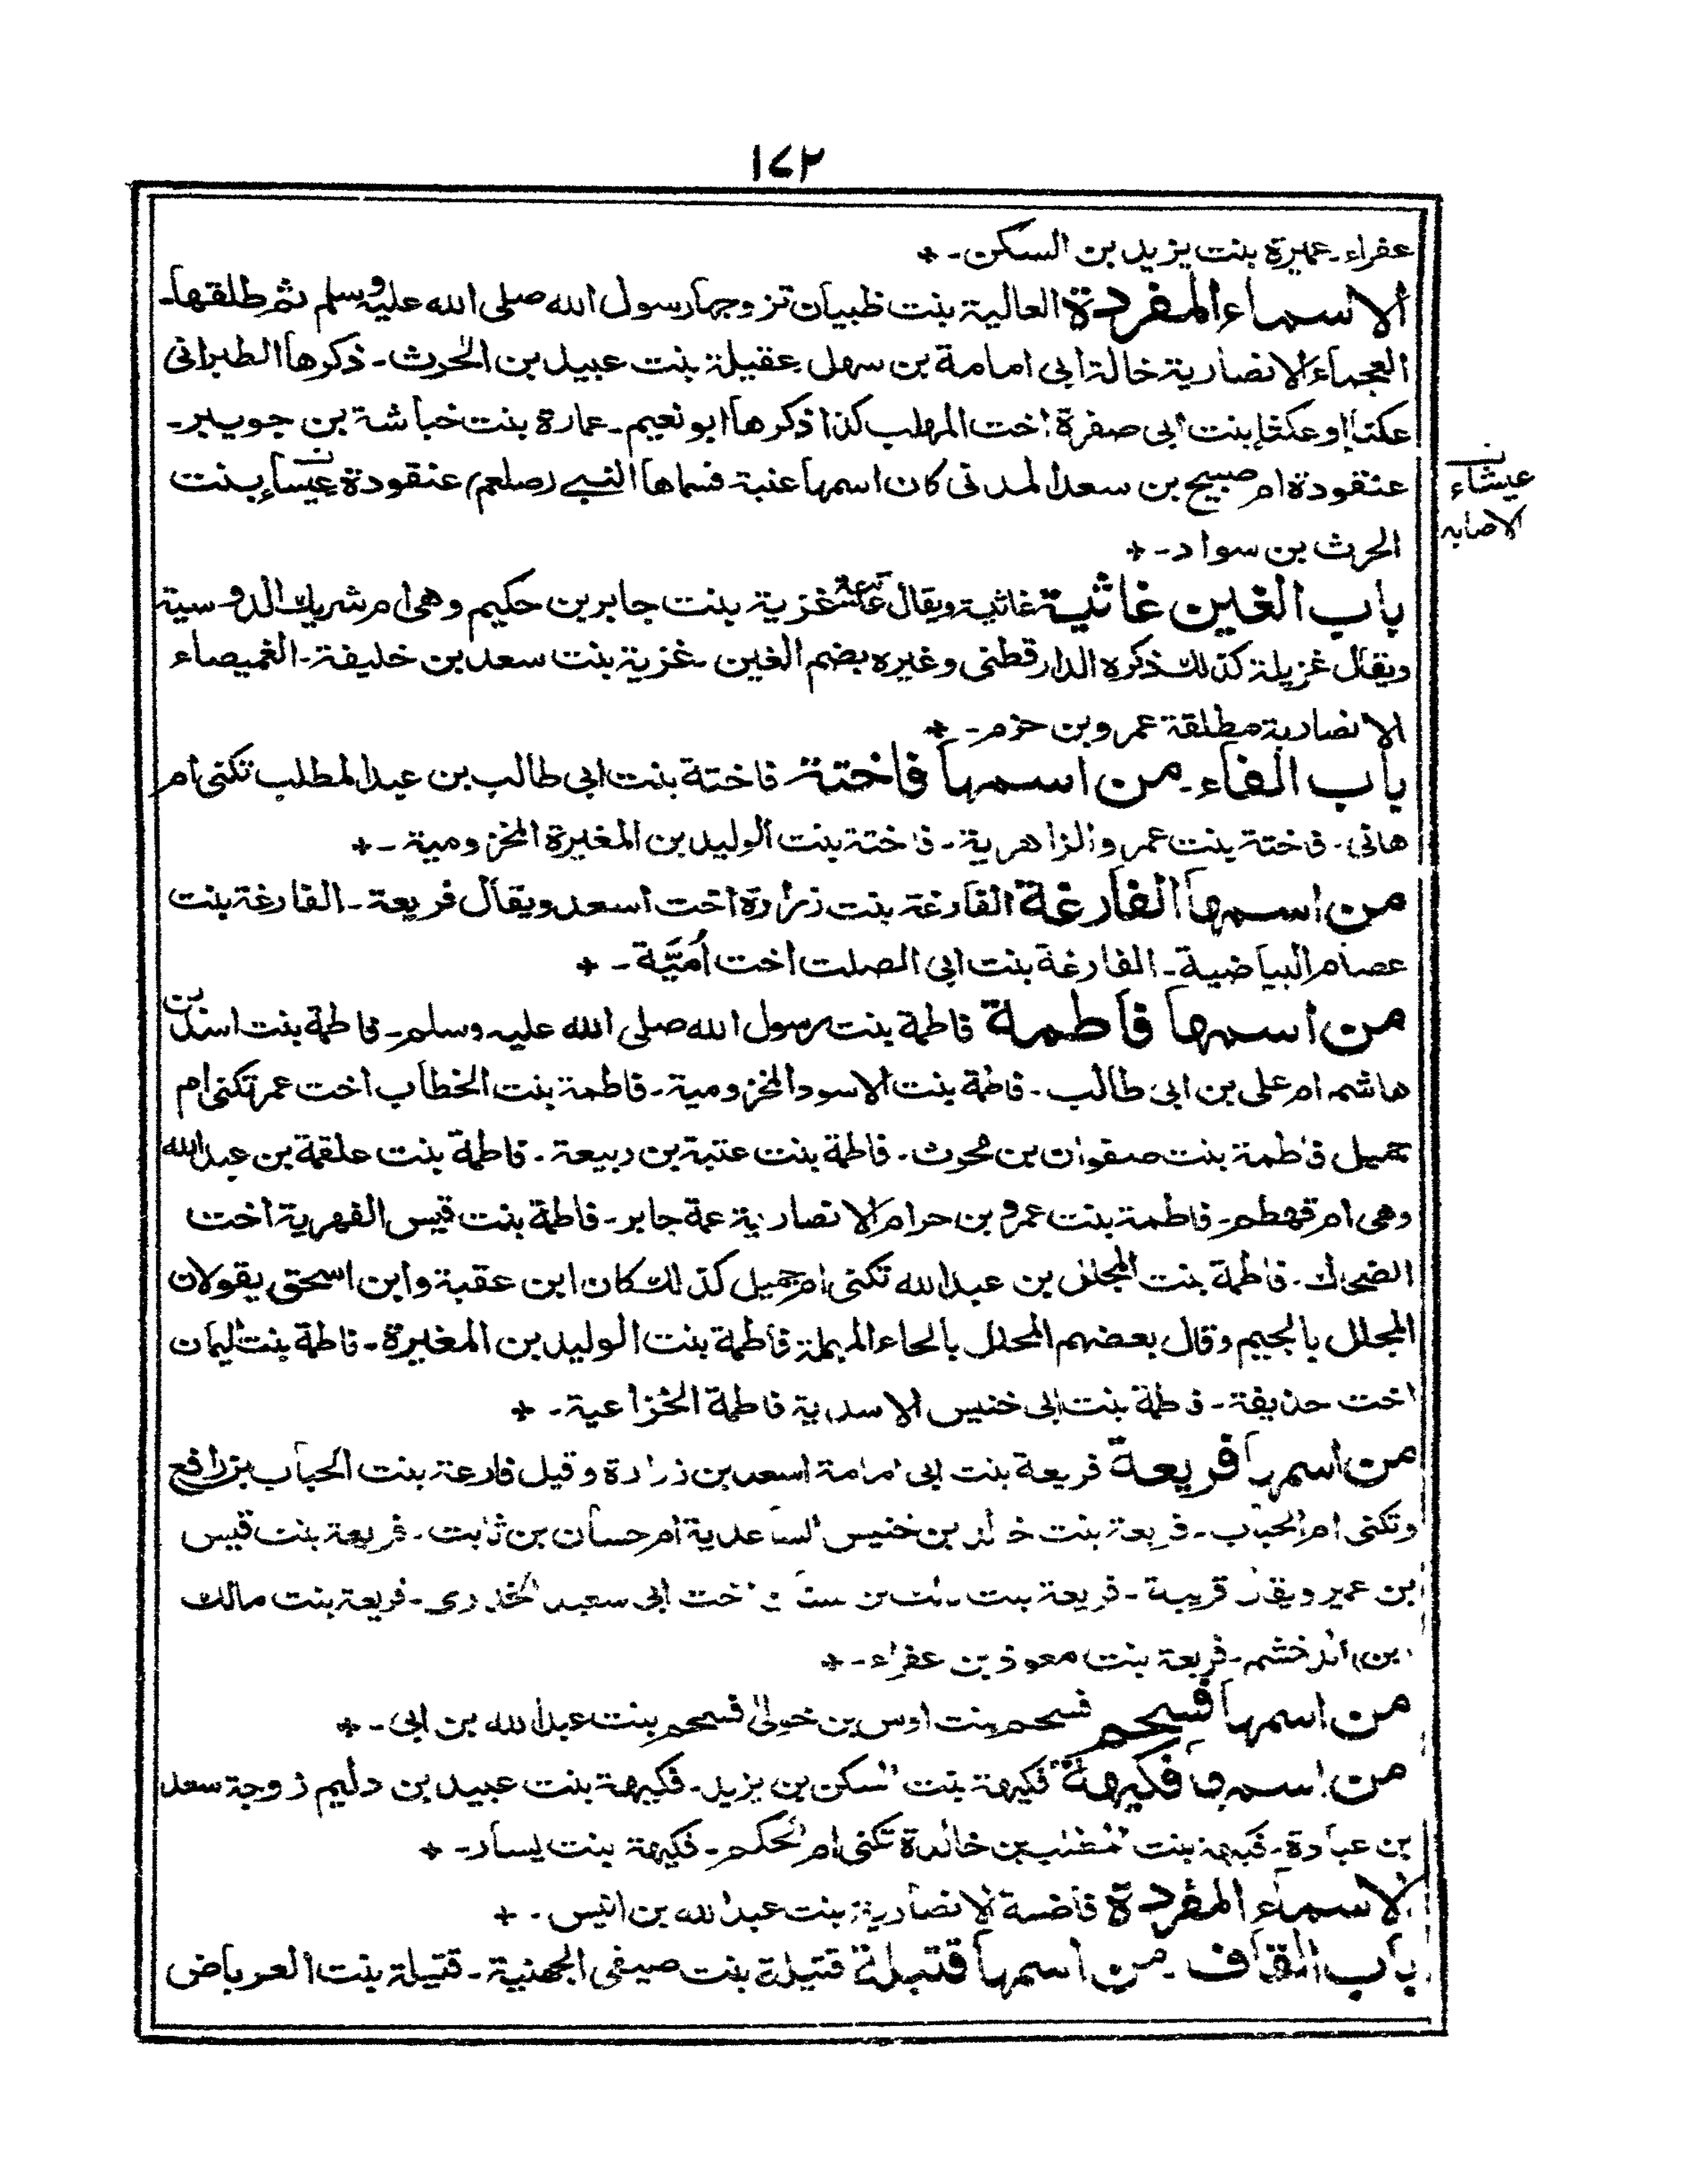 ١٧٢
عفراء ـ عميرة بنت يزيد بن السكن ـ *
الاسماء المفردة العالية بنت ظبيان تزوجها رسول الله صلى الله عليه وسلم ثم طلقها ـ
العجماء الانصارية خالة ابي امامة بن سهل عقيلة بنت عبيد بن الحرث ـ ذكرها الطبرانى
عكتا او عكتا بنت ابى صفرة اخت المهلب كذا ذكرها ابو نعيم ـ عمارة بنت خباشة بن جويبر ـ
عنقودة ام صبيح بن سعد المدنى كان اسمها عنبة فسماها النبي (صلعم) عنقودة عيساء بنت
ن
عيشاء
الاصابه
الحرث بن سواد ـ *
باب الغين غاثية غاثية ويقال غزية بنت جابر بن حكيم وهى ام شريك الدوسية
ويقال غزيلة كذلك ذكره الدارقطنى وغيره بضم الغين ـ غزية بنت سعد بن خليفة ـ الغميصاء
الانصارية مطلقة عمرو بن حزم ـ *
باب الفاء ـ من اسمها فاختة فاختة بنت ابى طالب بن عبد المطلب تكنى ام
هانى ـ فاختة بنت عمرو الزاهرية ـ فاختة بنت الوليد بن المغيرة المخزومية ـ *
من اسمها الفارغة الفارغة بنت زرارة اخت اسعد ويقال فريعة ـ الفارغة بنت
عصام البياضية ـ الفارغة بنت ابى الصلت اخت أُمَيَّة ـ *
من اسمها فاطمة فاطمة بنت رسول الله صلى الله عليه وسلم ـ فاطمة بنت اسد بن
هاشم ام على بن ابى طالب ـ فاطمة بنت الاسود المخزومية ـ فاطمة بنت الخطاب اخت عمر تكنى ام
جميل فاطمة بنت صفوان بن محرث ـ فاطمة بنت عتبة بن ربيعة ـ فاطمة بنت علقمة بن عبد الله
وهى ام قهطم ـ فاطمة بنت عمرو بن حرام الانصارية عمة جابر ـ فاطمة بنت قيس الفهرية اخت
الضحاك ـ فاطمة بنت المجلل بن عبد الله تكنى ام جميل كذلك كان ابن عقبة وابن اسحق يقولان
المجلل بالجيم وقال بعضهم المحلل بالحاء المهملة فاطمة بنت الوليد بن المغيرة ـ فاطمة بنت اليمان
اخت حذيفة ـ فاطمة بنت ابى خنيس الاسدية فاطمة الخزاعية ـ *
من اسمها فريعة فريعة بنت ابى امامة اسعد بن زرارة وقيل فارعة بنت الحباب بن رافع
وتكنى ام الحباب ـ فريعة بنت خالد بن خنيس الساعدية ام حسان بن ثابت ـ فريعة بنت قيس
بن عمير ويقال قريبة ـ فريعة بنت مالك بن سنان اخت ابى سعيد الخدرى ـ فريعة بنت مالك
بن الدخشم ـ فريعة بنت معوذ بن عفراء ـ *
من اسمها فسحم فسحم بنت اوس بن خولى فسحم بنت عبد الله بن ابى ـ *
من اسمها فكيهة فكيهة بنت السكن بن يزيد ـ فكيهة بنت عبيد بن دليم زوجة سعد
بن عبادة ـ فكيهة بنت المطلب بن خالدة تكنى ام الحكم ـ فكيهة بنت يسار ـ *
الاسماء المفردة فاضسة الانصارية بنت عبد الله بن انيس ـ *
باب القاف ـ من اسمها قتيلة قتيلة بنت صيفى الجهنية ـ قتيلة بنت العرباض